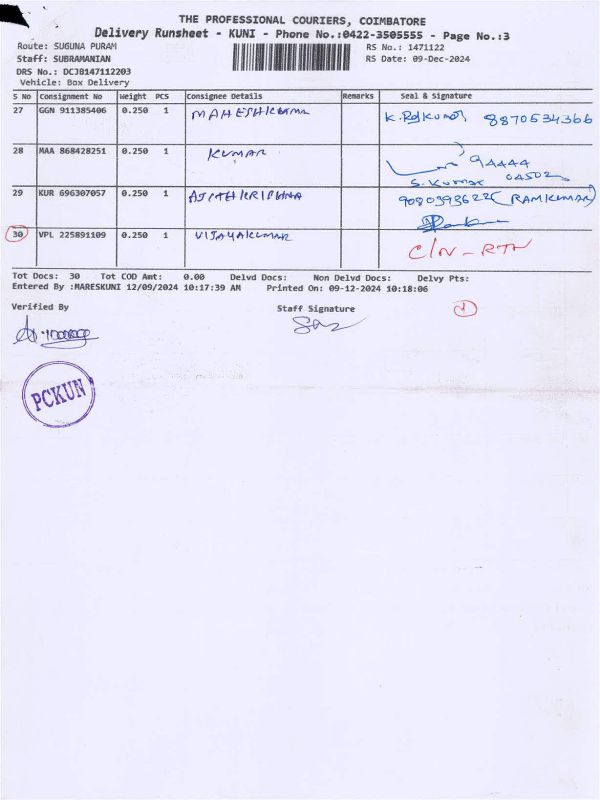 THE PROFESSIONAL COURIERS, COIMBATORE
Delivery Runsheet - KUNI - Phone No.:0422-3505555 - Page No.:3
Route: SUGUNA PURAM RS No.: 1471122
Staff: SUBRAMANIAN RS Date: 09-Dec-2024
DRS No.: DCJB147112203
Vehicle: Box Delivery
S No Consignment No Weight PCS Consignee Details Remarks Seal & Signature
27 GGN 911385406 0.250 1 MAHESHKUMAR K.RajKumar 8870534366
28 MAA 868428251 0.250 1 KUMAR 94444
S. Kumar 04502
29 KUR 696307057 0.250 1 AJITHKRISHNA 9080393622 (RAMKUMAR)
30 VPL 225891109 0.250 1 VIJAYAKUMAR C/N-RTN
Tot Docs: 30 Tot COD Amt: 0.00 Delvd Docs: Non Delvd Docs: Delvy Pts:
Entered By :MARESKUNI 12/09/2024 10:17:39 AM Printed On: 09-12-2024 10:18:06
Verified By Staff Signature
PCKUN